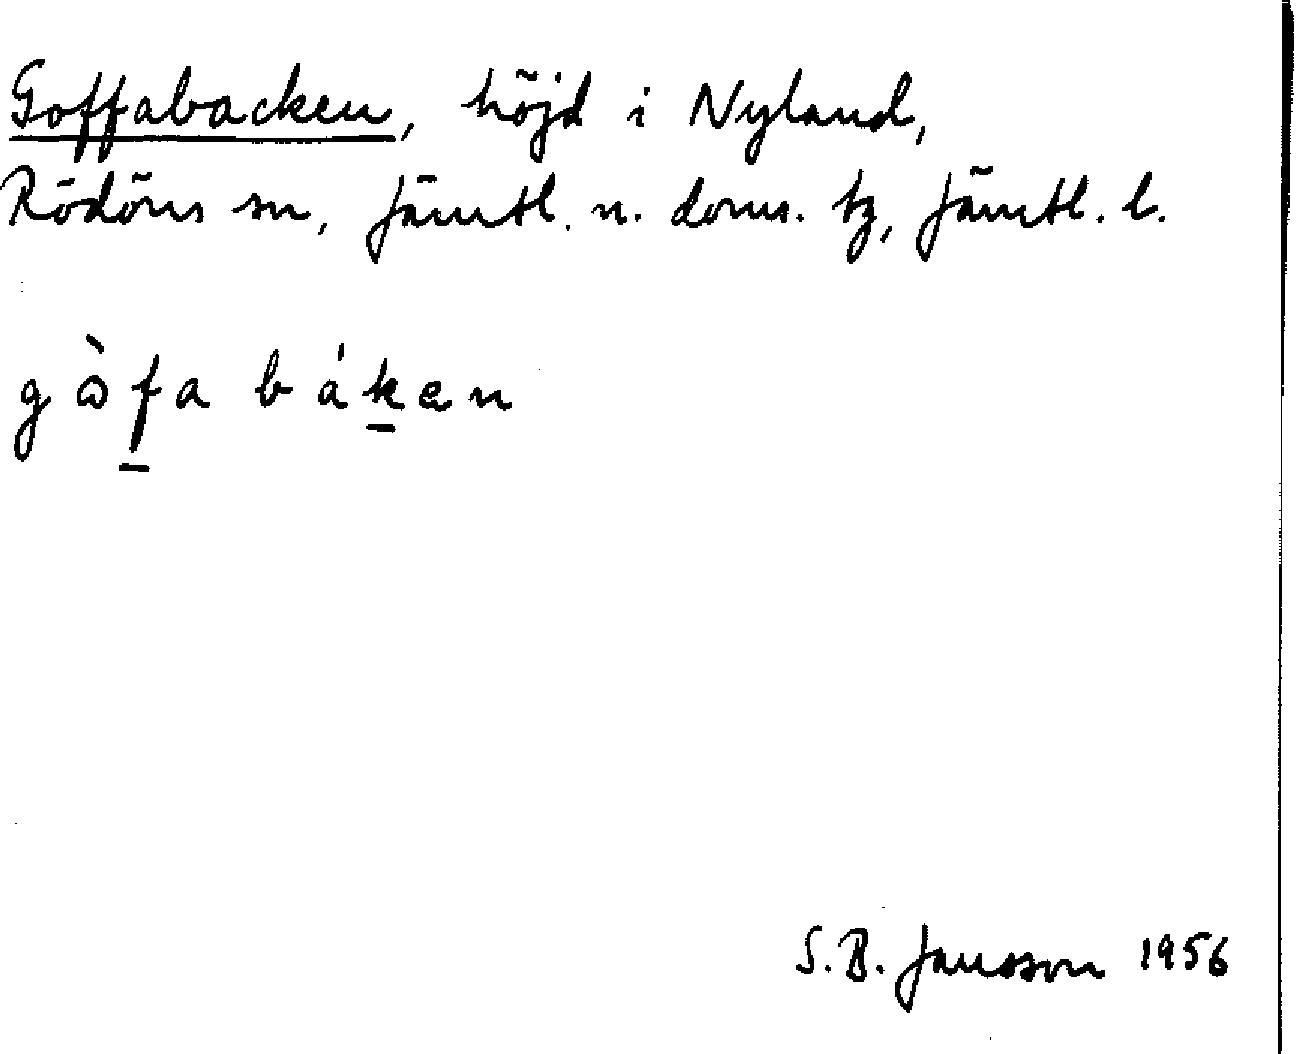 Goffabacken, höjd i Nyland,
Rödöns sn, Jämtl. n. doms. tg, Jämtl. l.
gɷ̀f̲a bák̲en
S. B. Jansson 1956